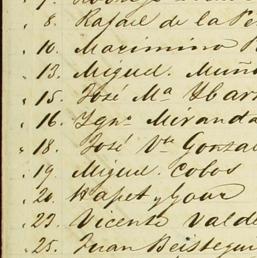 8. Rafael de la Pe
10. Maximino
13. Miguel Muño
15. José Mª Ybar
16. Ygnº Miranda
18. José Vte Gonza
19. Miguel Cobos
20.
23. Vicente Valde
25. Juan Beistegui